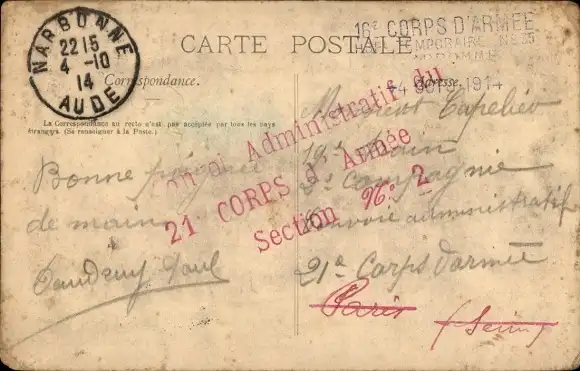 NARBONNE
22 15
4 -10
14
AUDE
16e CORPS D'ARMÉE
TEMPORAIRE N° 35
1914
CARTE POSTALE
Correspondance.
Adresse.
La Correspondance au recto n'est pas acceptée par tous les pays
étrangers. (Se renseigner à la Poste.)
Convoi Administratif du
21 CORPS d'Armée
Section N: 2
Bonne poignée
de main
Paul
19e train
Compagnie
Convoie administratif
21e Corps d'armée
Paris
(Seine)